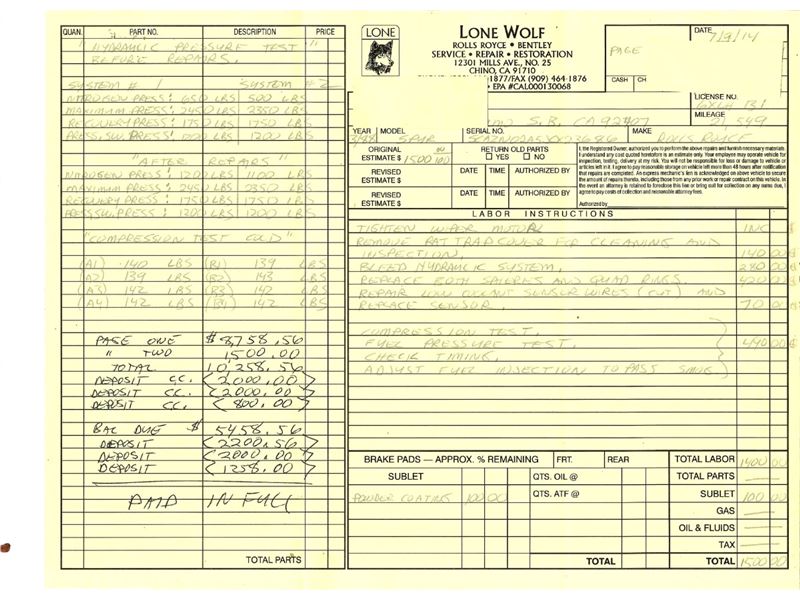 QUAN. PART NO. DESCRIPTION PRICE
"HYDRAULIC PRESSURE TEST"
BEFORE REPAIRS.
SYSTEM # 1 SYSTEM # 2
NITROGEN PRESS: 650 LBS 500 LBS
MAXIMUM PRESS: 2450 LBS 2350 LBS
RECOVERY PRESS: 1750 LBS 1750 LBS
PRESS. SW. PRESS: 1200 LBS 1200 LBS
"AFTER REPAIRS"
NITROGEN PRESS: 1200 LBS 1100 LBS
MAXIMUM PRESS: 2450 LBS 2350 LBS
RECOVERY PRESS: 1750 LBS 1750 LBS
PRESS SW. PRESS: 1200 LBS 1200 LBS
"COMPRESSION TEST COLD"
(A1) 140 LBS (B1) 139 LBS
(A2) 139 LBS (B2) 143 LBS
(A3) 142 LBS (B3) 142 LBS
(A4) 142 LBS (B4) 142 LBS
PAGE ONE $8,758.56
" TWO 1500.00
TOTAL 10,258.56
DEPOSIT CC. <2000.00>
DEPOSIT CC. <2000.00>
DEPOSIT CC. <800.00>
BAL DUE $ 5458.56
DEPOSIT <2200.56>
DEPOSIT <2000.00>
DEPOSIT <1258.00>
PAID IN FULL
TOTAL PARTS
LONE
LONE WOLF
ROLLS ROYCE • BENTLEY
SERVICE • REPAIR • RESTORATION
12301 MILLS AVE., NO. 25
CHINO, CA 91710
1877/FAX (909) 464-1876
• EPA #CAL000130068
DATE 7/9/14
PAGE
CASH CH
LICENSE NO.
S.B. CA 92407
MILEAGE
21,549
YEAR MODEL SERIAL NO. MAKE
SPUR ROLLS ROYCE
ORIGINAL ESTIMATE $ 1500.00
RETURN OLD PARTS
YES NO
REVISED ESTIMATE $ DATE TIME AUTHORIZED BY
REVISED ESTIMATE $ DATE TIME AUTHORIZED BY
I, the Registered Owner, authorized you to perform the above repairs and furnish necessary materials.
I understand any cost quoted heretofore is an estimate only. Your employee may operate vehicle for
inspection, testing, delivery at my risk. You will not be responsible for loss or damage to vehicle or
articles left in it. I agree to pay reasonable storage on vehicle left more than 48 hours after notification
that repairs are completed. An express mechanic's lien is acknowledged on above vehicle to secure
the amount of repairs thereto, including those from any prior work or repair contract on this vehicle. In
the event an attorney is retained to foreclose this lien or bring suit for collection on any sums due, I
agree to pay costs of collection and reasonable attorney fees.
Authorized by
LABOR INSTRUCTIONS
TIGHTEN WIPER MOTOR INC
REMOVE RAT TRAP COVER FOR CLEANING AND
INSPECTION. 140 00
BLEED HYDRAULIC SYSTEM. 280 00
REPLACE BOTH SPHERES AND QUAD RINGS. 420 00
REPAIR LOW COOLANT SENSOR WIRES (CUT) AND
REPLACE SENSOR. 70 00
COMPRESSION TEST.
FUEL PRESSURE TEST. 490 00
CHECK TIMING.
ADJUST FUEL INJECTION TO PASS SMOG.
BRAKE PADS — APPROX. % REMAINING FRT. REAR TOTAL LABOR 1400 00
SUBLET QTS. OIL @ TOTAL PARTS
POWDER COATING 100 00 QTS. ATF @ SUBLET 100 00
GAS
OIL & FLUIDS
TAX
TOTAL TOTAL 1500 00